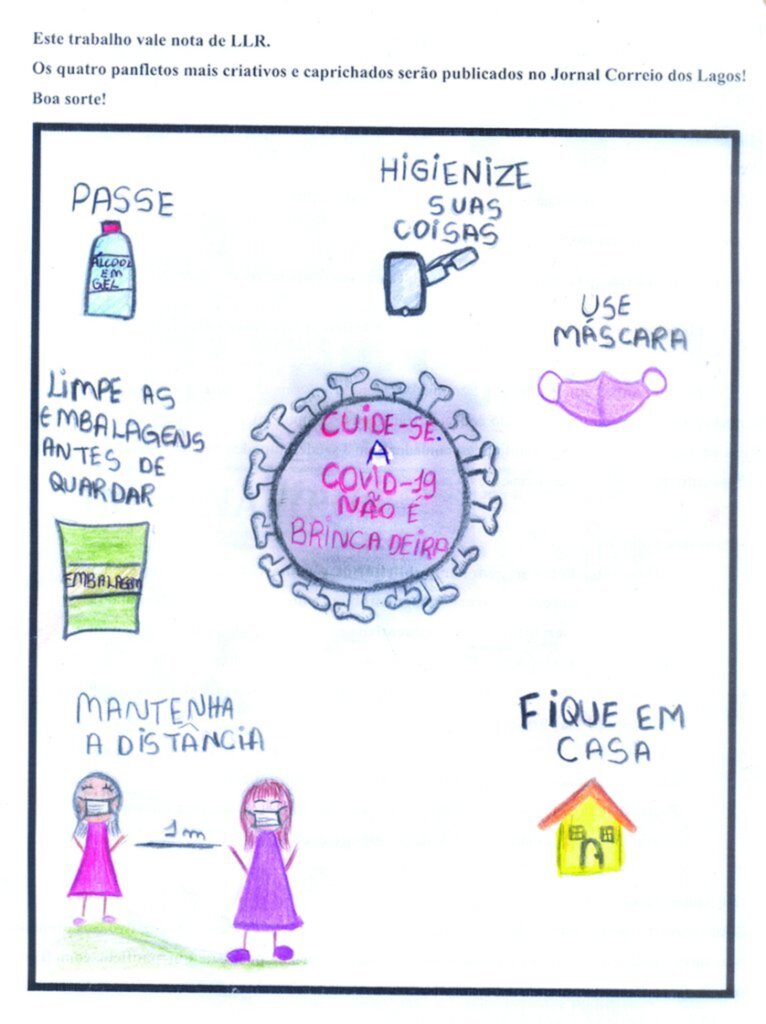 Este trabalho vale nota de LLR.
Os quatro panfletos mais criativos e caprichados serão publicados no Jornal Correio dos Lagos!
Boa sorte!
PASSE
ÁLCOOL
EM
GEL
HIGIENIZE
SUAS
COISAS
USE
MÁSCARA
LIMPE AS
EMBALAGENS
ANTES DE
QUARDAR
EMBALAGEM
CUIDE-SE.
A
COVID-19
NÃO É
BRINCADEIRA
MANTENHA
A DISTÂNCIA
1m
FIQUE EM
CASA